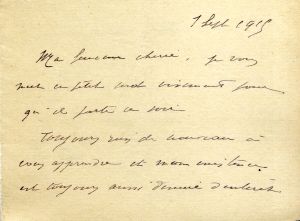 1 Sept 1915
Ma  chérie, je vous
mets ce petit mot  pour
qu'il parte ce soir
Toujours rien de nouveau à
vous apprendre et mon existence
est toujours aussi dénuée d'intérêt